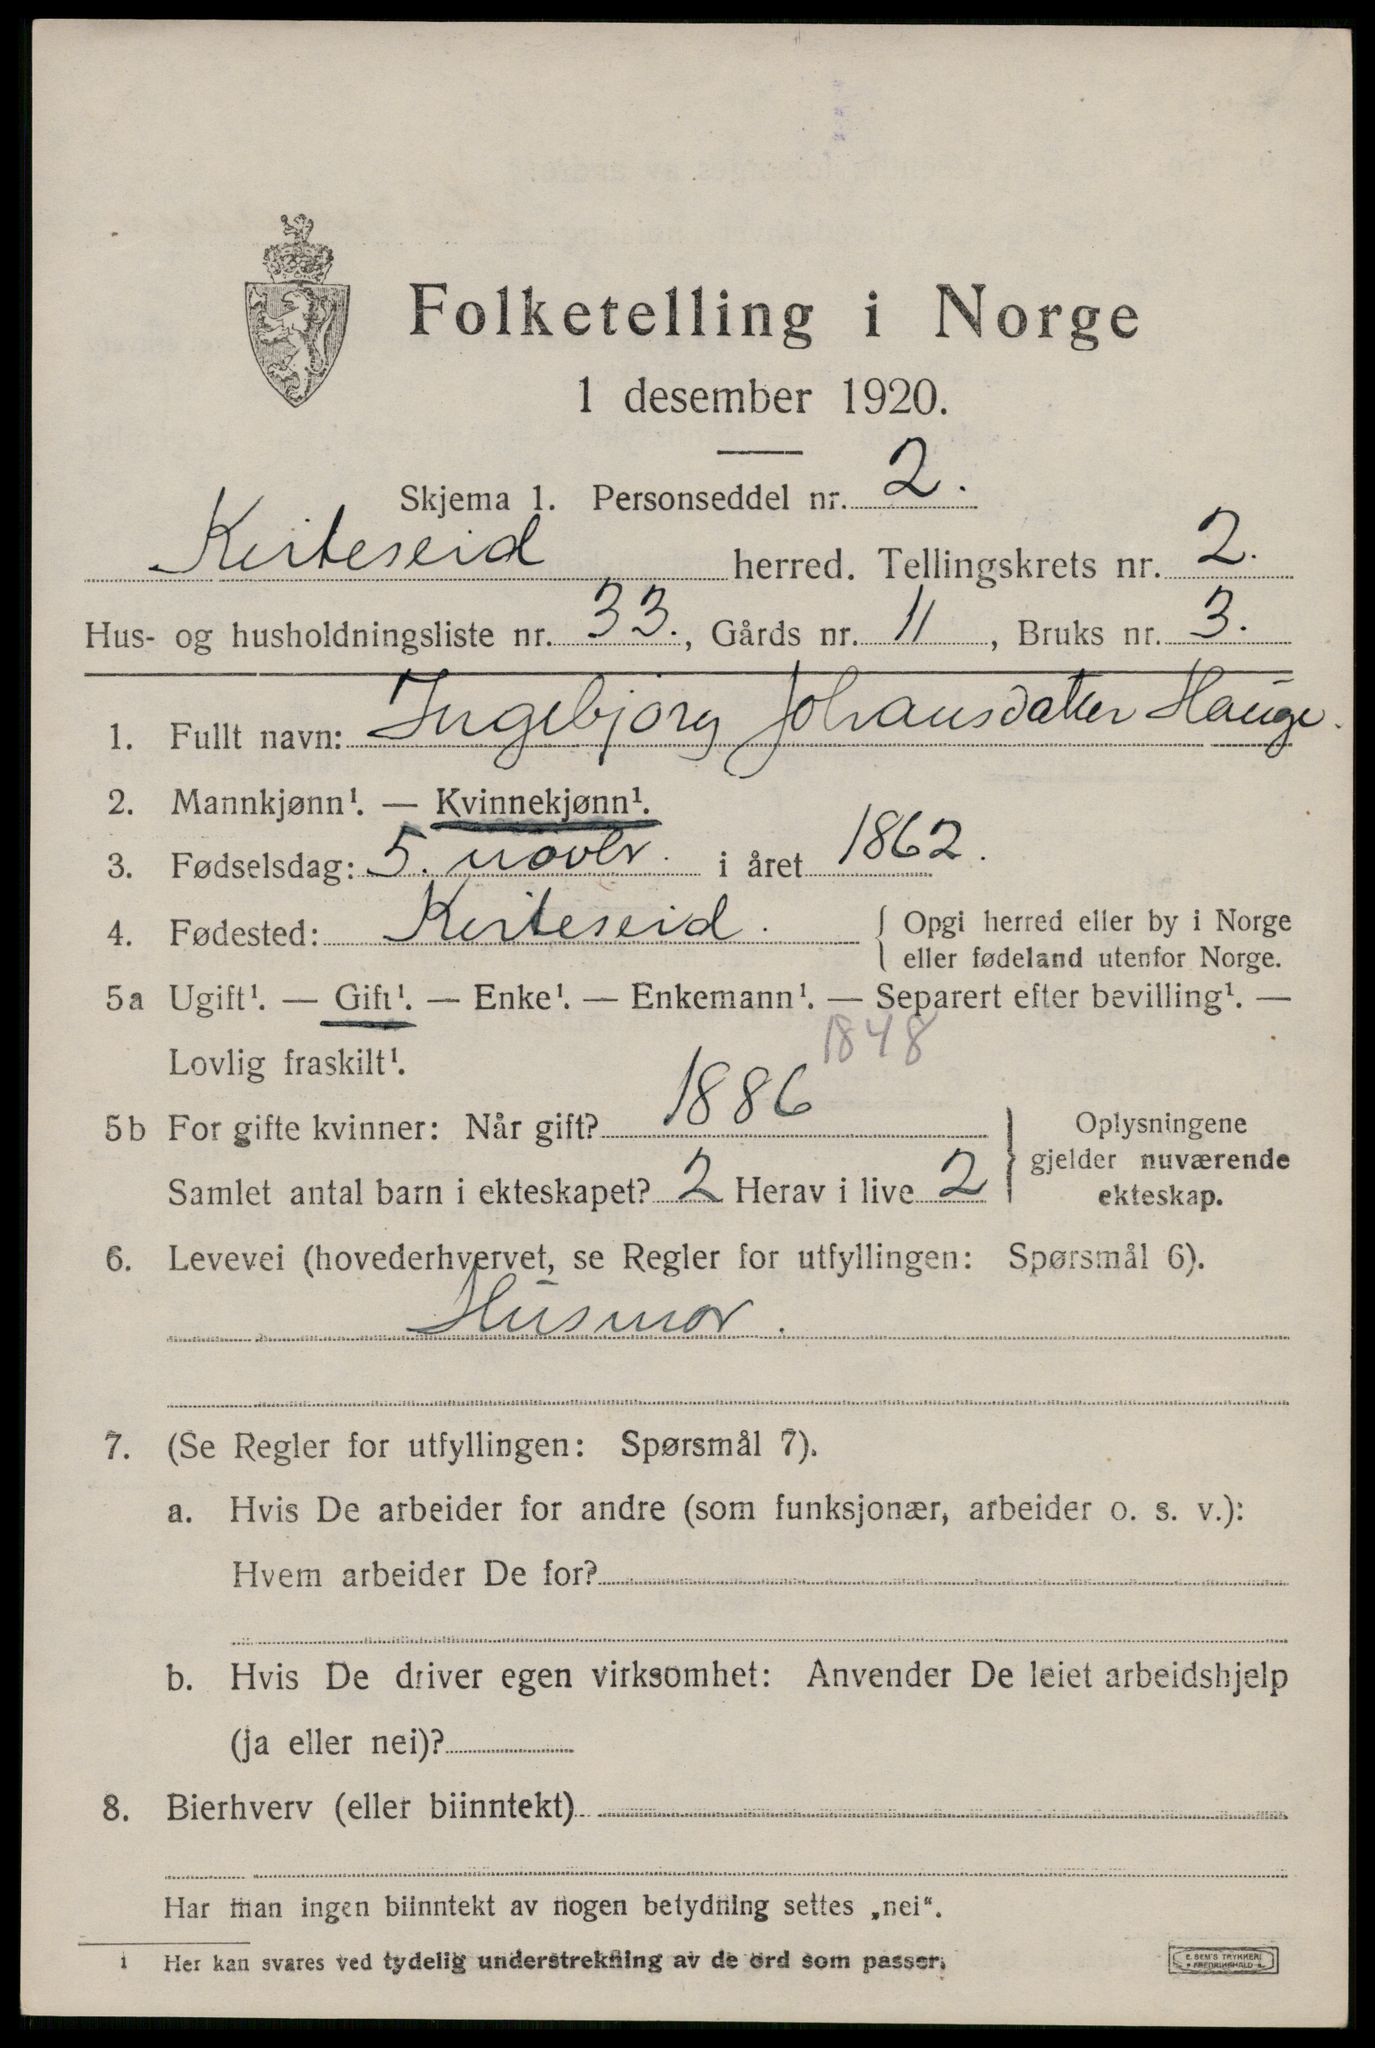 Folketelling i Norge
1 desember 1920.
Skjema 1. Personseddel nr. 2.
Kviteseid herred. Tellingskrets nr. 2.
Hus- og husholdningsliste nr. 33., Gårds nr. 11, Bruks nr. 3.
1. Fullt navn: Ingebjörg Johansdatter Hauge.
2. Mannkjønn¹. — Kvinnekjønn¹.
3. Fødselsdag: 5. novbr. i året 1862.
4. Fødested: Kviteseid. { Opgi herred eller by i Norge
eller fødeland utenfor Norge.
5a Ugift¹. — Gift¹. — Enke¹. — Enkemann¹. — Separert efter bevilling¹. —
Lovlig fraskilt¹. 1848
5b For gifte kvinner: Når gift? 1886
Samlet antal barn i ekteskapet? 2 Herav i live 2
} Oplysningene
gjelder nuværende
ekteskap.
6. Levevei (hovederhvervet, se Regler for utfyllingen: Spørsmål 6).
Husmor.
7. (Se Regler for utfyllingen: Spørsmål 7).
a. Hvis De arbeider for andre (som funksjonær, arbeider o. s. v.):
Hvem arbeider De for?
b. Hvis De driver egen virksomhet: Anvender De leiet arbeidshjelp
(ja eller nei)?
8. Bierhverv (eller biinntekt)
Har man ingen biinntekt av nogen betydning settes „nei“.
1 Her kan svares ved tydelig understrekning av de ord som passer.
E. SEM'S TRYKKERI
FREDRIKSHALD